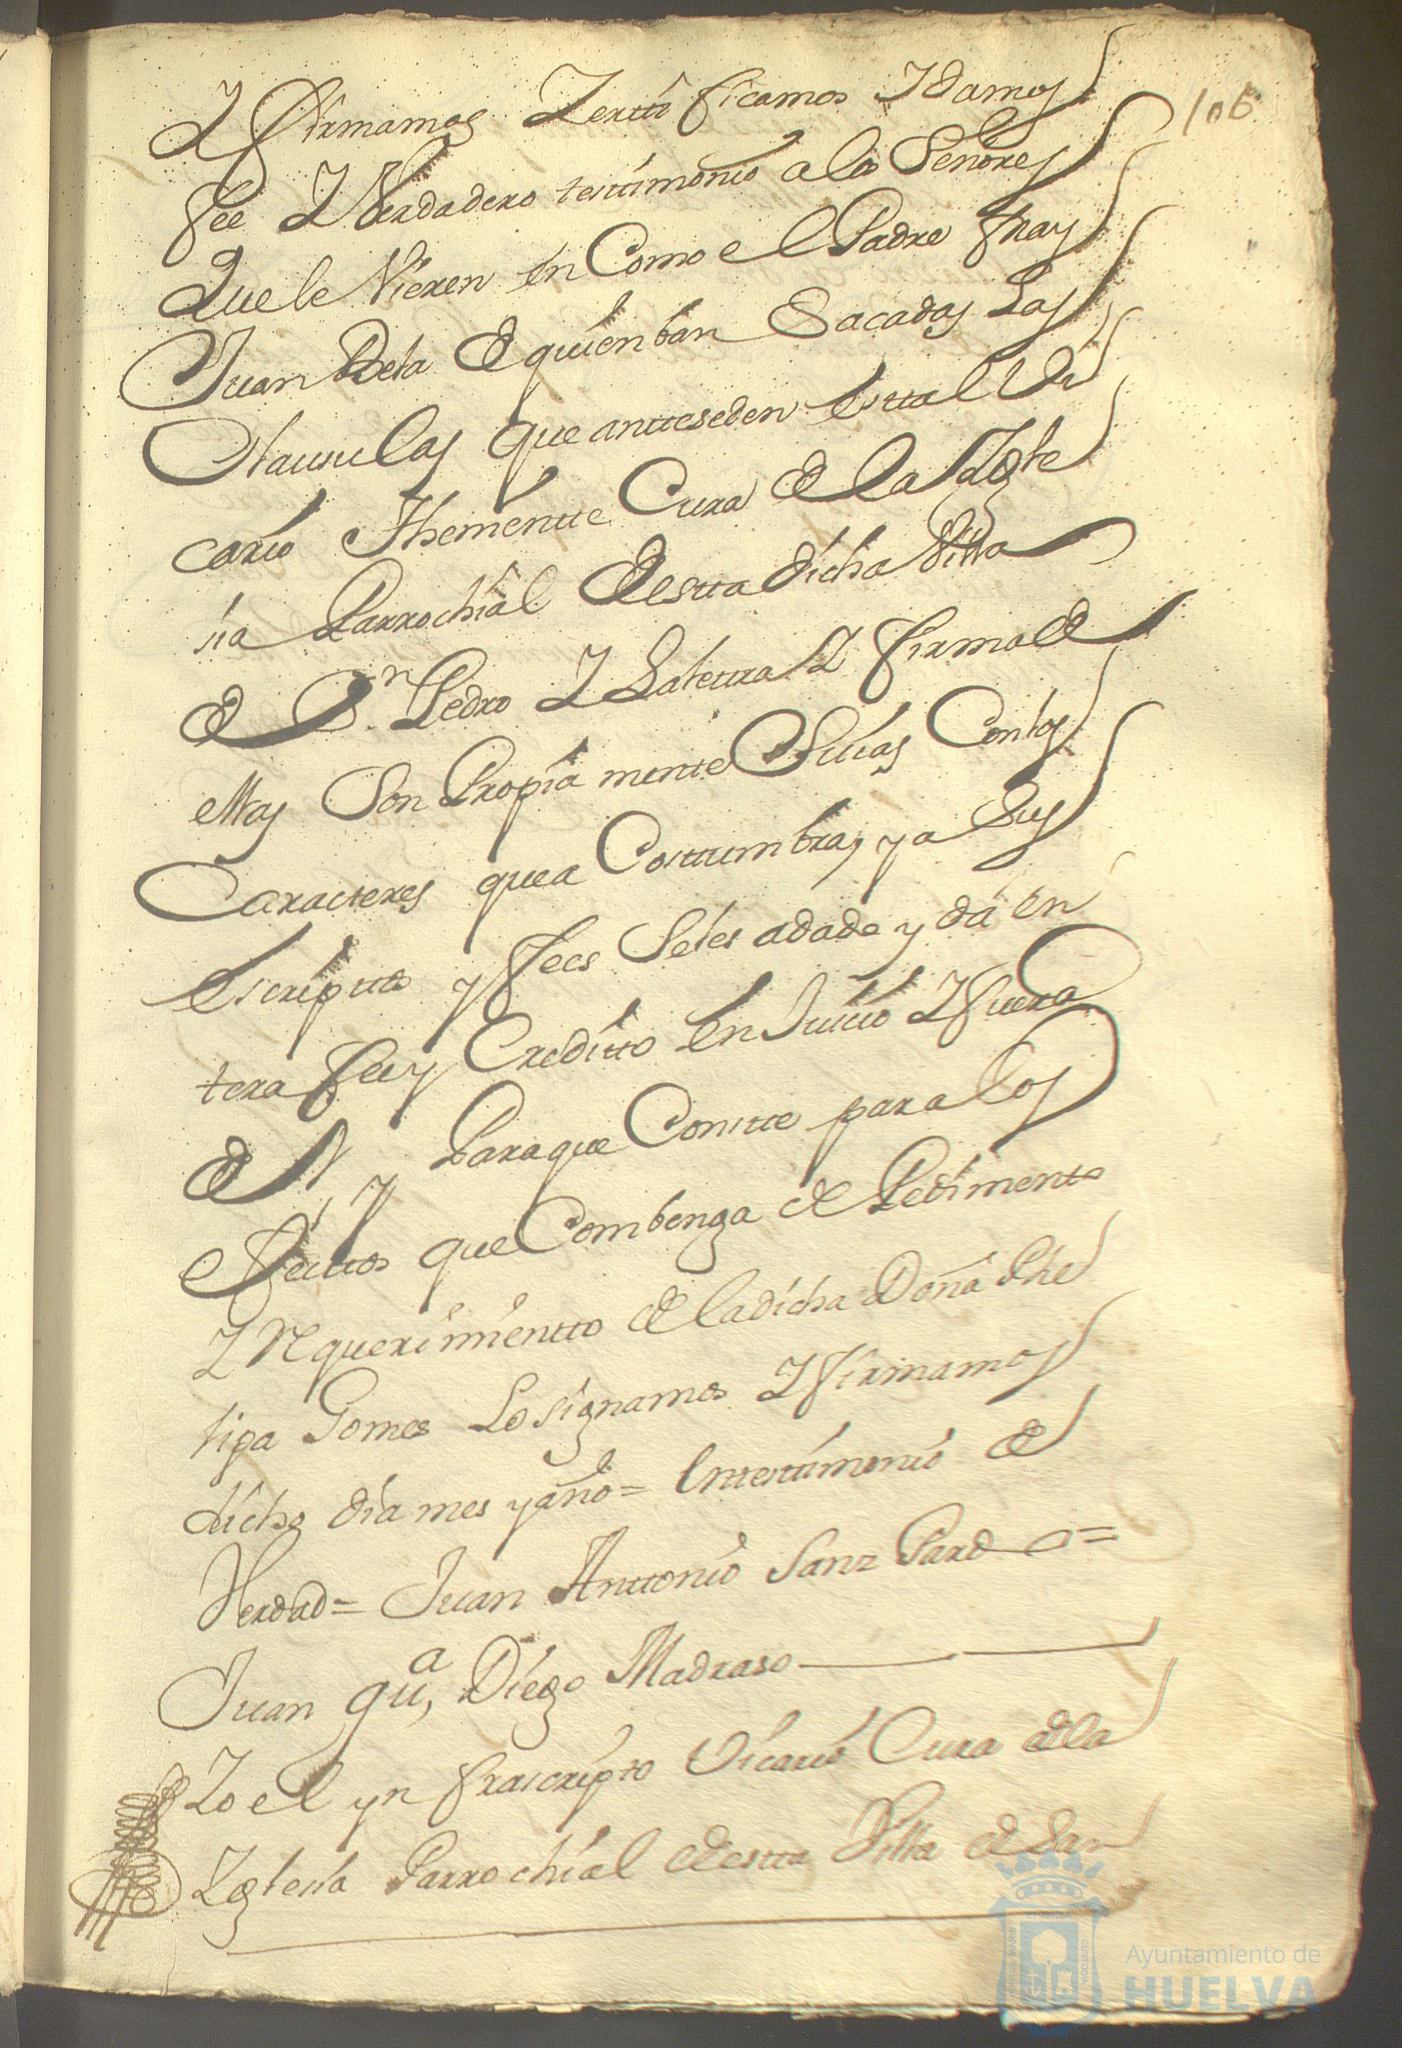 106
Y firmamos Zerttificamos Y damos
fee Y Verdadero testtimonio a los Señores
Que le Vieren en Como el Padre fray
Juan de quien ban Sacadas Las
Clausulas que antteseden es tal Vi
cario Theniente Cura de la Yglé
sia Parrochial de estta dicha Villa
de Sn. Pedro Y La letra Y firma de
ellas Son Propia mente Suias Con los
Caracteres que a Costtumbra, y a Sus
escriptto y fees Se les a dado y dá en
tera fee y Creditto en Juicio Y fuera
de el, y Para que Constte para los
efecttos que Combenga de Pedimento
Y Requerimientto de la dicha Doña Phe
lipa Gomes Lo signamos Y firmamos
dicho dia mes y año = En testimonio de
Verdad = Juan Anttonio Sanz Pardo =
Juan gu,a Diego Madraso
Yo el yn frascripto Vicario Cura de la
Yglesia Parrochial de estta Villa de San
Ayuntamiento de
HUELVA